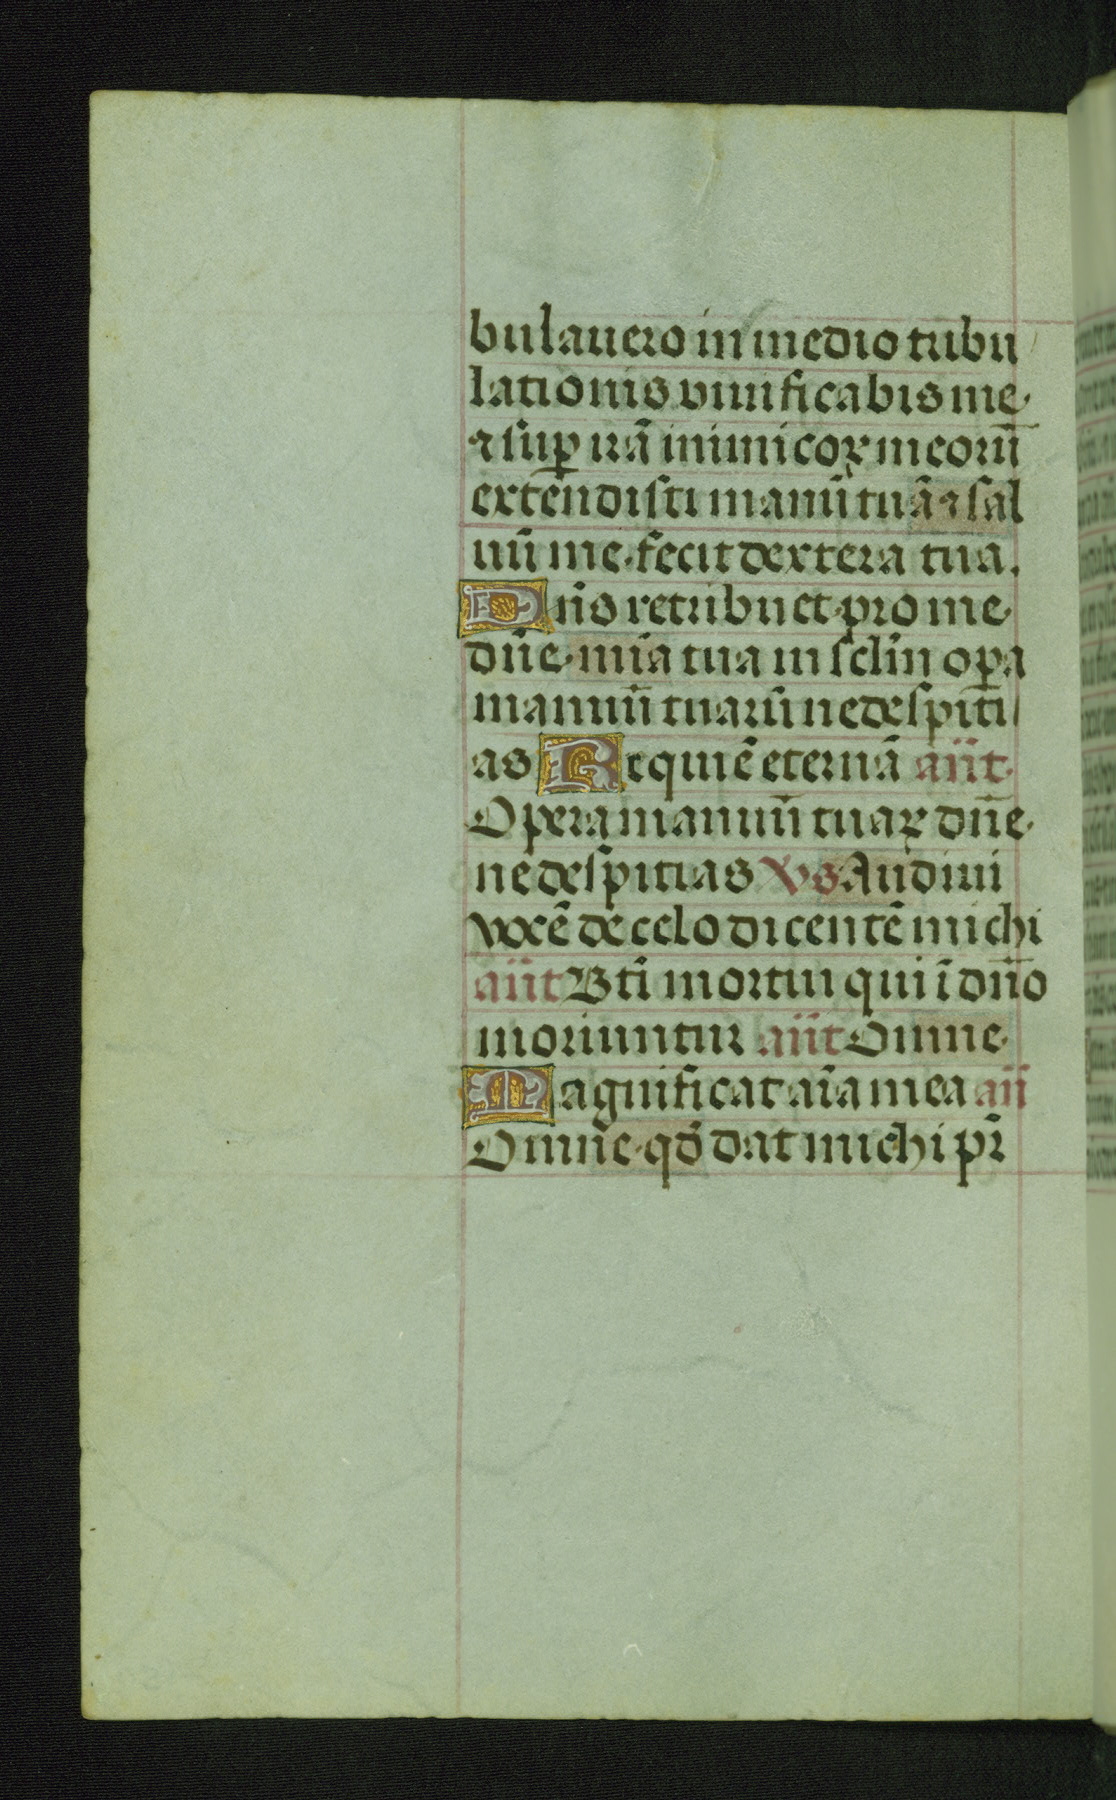 bulauero in medio tribu
lationis viuificabis me·
⁊ sup̱ irā inimicoꝝ meorū
extendisti manū tuā ⁊ sal
uū me· fecit dextera tua.
Dn̄s retribuet pro me·
dn̄e· mīa tua in sclm̄ oꝑa
manuū tuarū ne despiti
as Requiē eternā añt·
Opera manuū tuaꝝ dn̄e·
ne despitias vs Audiui
vocē de celo dicentē michi
añt Bt̄i mortui qui ī dn̄o
moriuntur añt Omne·
Magnificat aīa mea añ
Omne· qd̄ dat michi pr̄